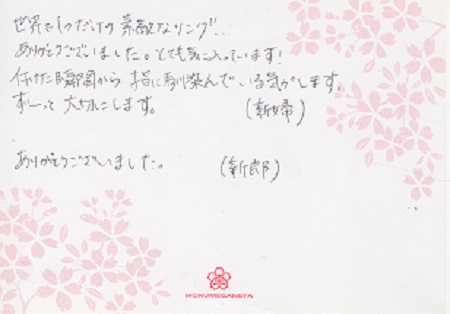 世界で1つだけの素敵なリング‥
ありがとうございました。とても気に入っています！
付けた瞬間から指に馴染んでいる気がします。
ずーっと大切にします。　（新婦）
ありがとうございました。　（新郎）
MOKUMEGANEYA